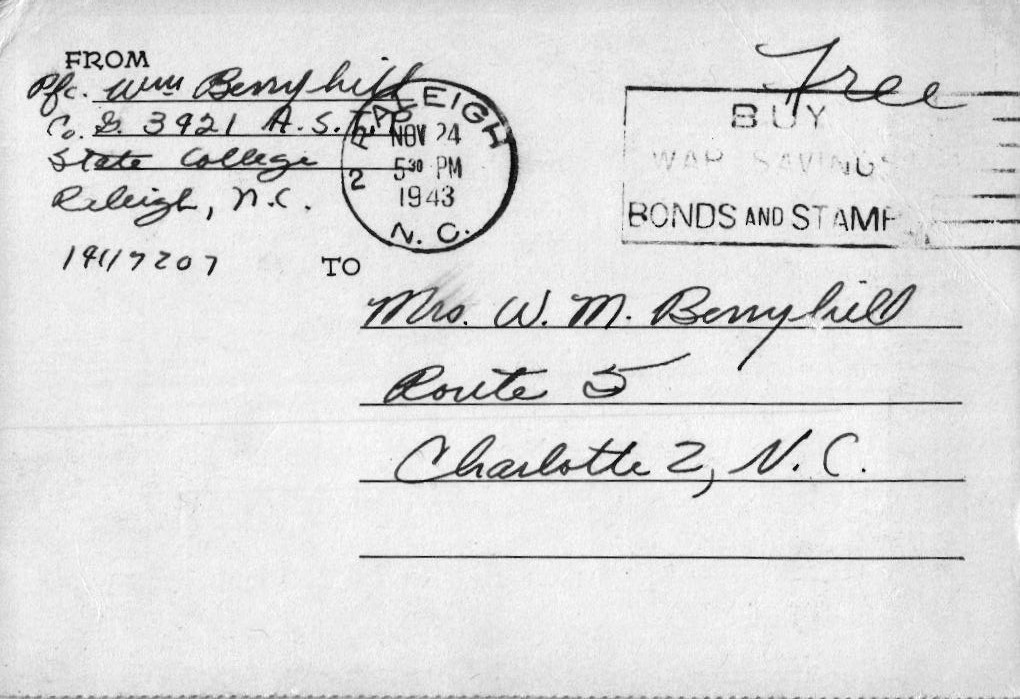 FROM
Pfc. Wm Berryhill
Co. G. 3921 A.S.T.P.
State College
Raleigh, N.C.
RALEIGH
NOV 24
5 30 PM
1943
2 N. C.
Free
BUY
WAR SAVINGS
BONDS AND STAMP
TO
Mrs. W. M. Berryhill
Route 5
Charlotte 2, N.C.